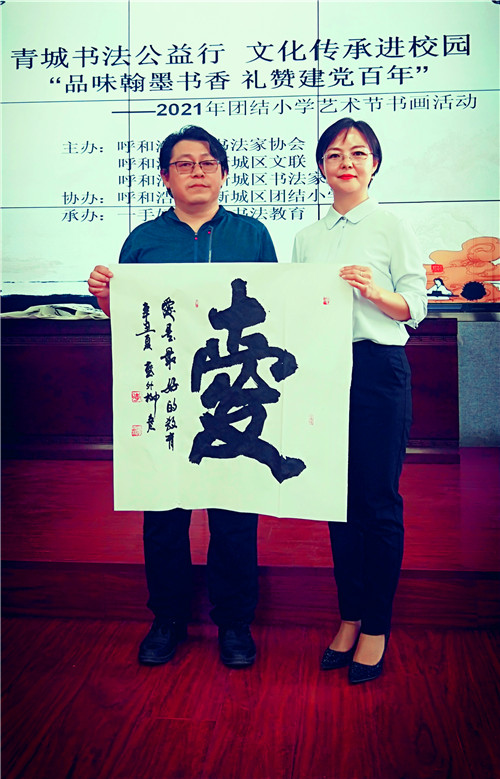 青城书法公益行 文化传承进校园
“品味翰墨书香 礼赞建党百年”
——2021年团结小学艺术节书画活动
主办：呼和浩 书法家协会
呼和浩 新城区文联
呼和浩 新城区书法家
协办：呼和浩 新城区团结小学
承办：一手 书法教育
愛
愛是最好的教育
辛丑夏